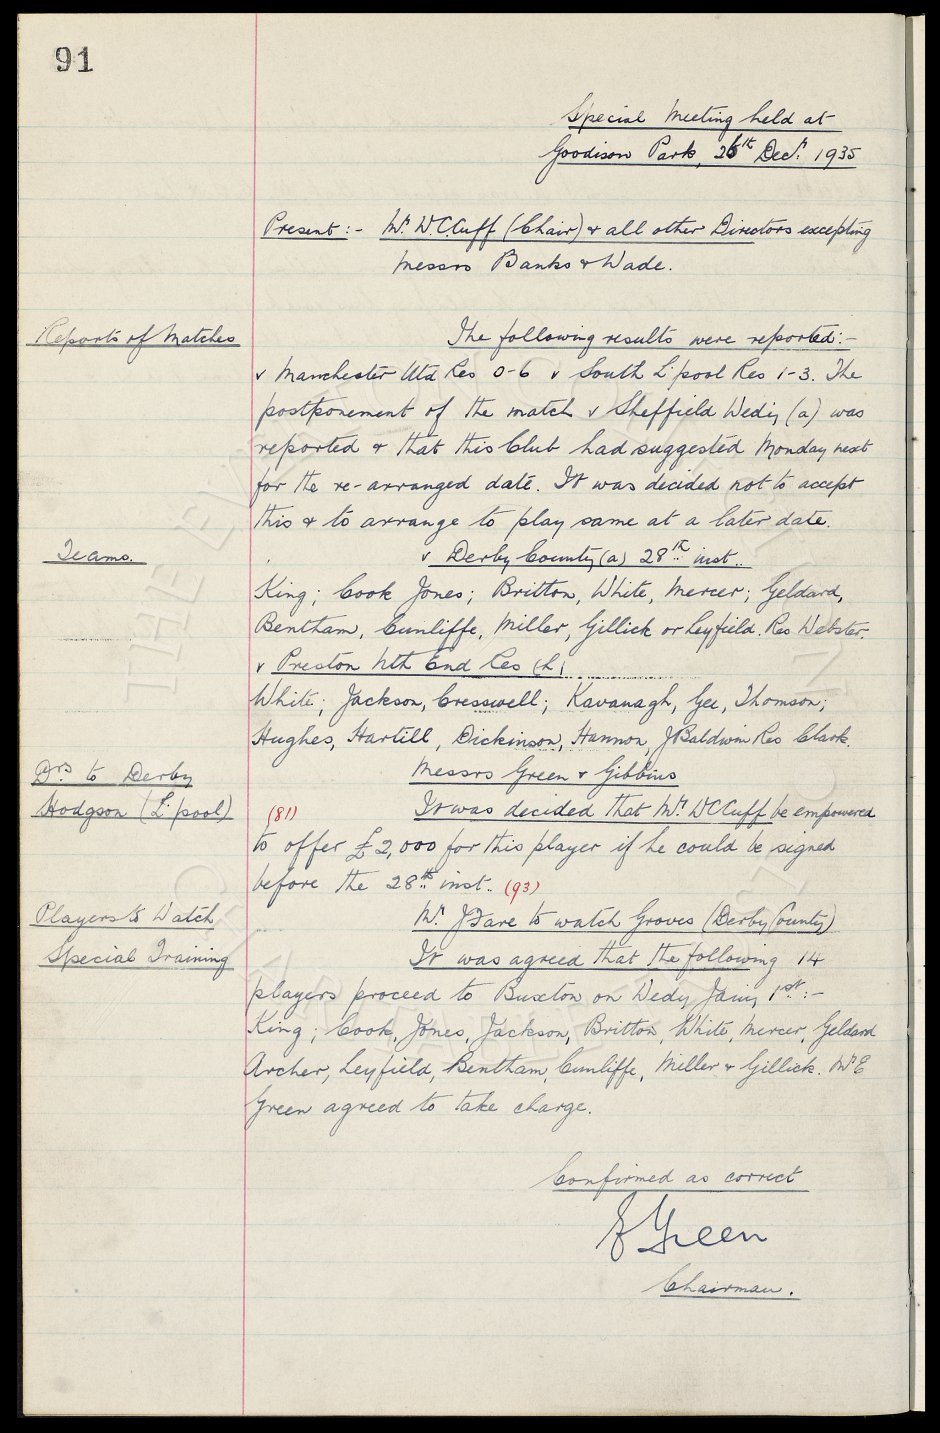 91
Special Meeting held at
Goodison Park, 26th Decr. 1935
Present:- Mr. W.C. Cuff (Chair) & all other Directors excepting
Messrs Banks & Wade.
Reports of Matches The following results were reported:-
v Manchester Utd Res 0-6 v South L'pool Res 1-3. The
postponement of the match v Sheffield Wedy (a) was
reported & that this Club had suggested Monday next
for the re-arranged date. It was decided not to accept
this & to arrange to play same at a later date.
Teams. v Derby County (a) 28th inst..
King; Cook Jones; Britton, White, Mercer; Geldard,
Bentham, Cunliffe, Miller, Gillick or Leyfield. Res Webster.
v Preston Nth End Res (h)
White; Jackson, Cresswell; Kavanagh, Gee, Thomson;
Hughes, Hartill, Dickinson, Hannon, J Baldwin Res Clark.
Drs to Derby Messrs Green & Gibbins
Hodgson (L'pool) (81) It was decided that Mr. WC Cuff be empowered
to offer £2,000 for this player if he could be signed
before the 28th inst.. (93)
Players to Watch Mr. J Fare to watch Groves (Derby County)
Special Training It was agreed that the following 14
players proceed to Buxton on Wedy Jany 1st:-
King; Cook, Jones, Jackson, Britton, White, Mercer, Geldard
Archer, Leyfield, Bentham, Cunliffe, Miller & Gillick. Mr E
Green agreed to take charge.
Confirmed as correct
E Green
Chairman.